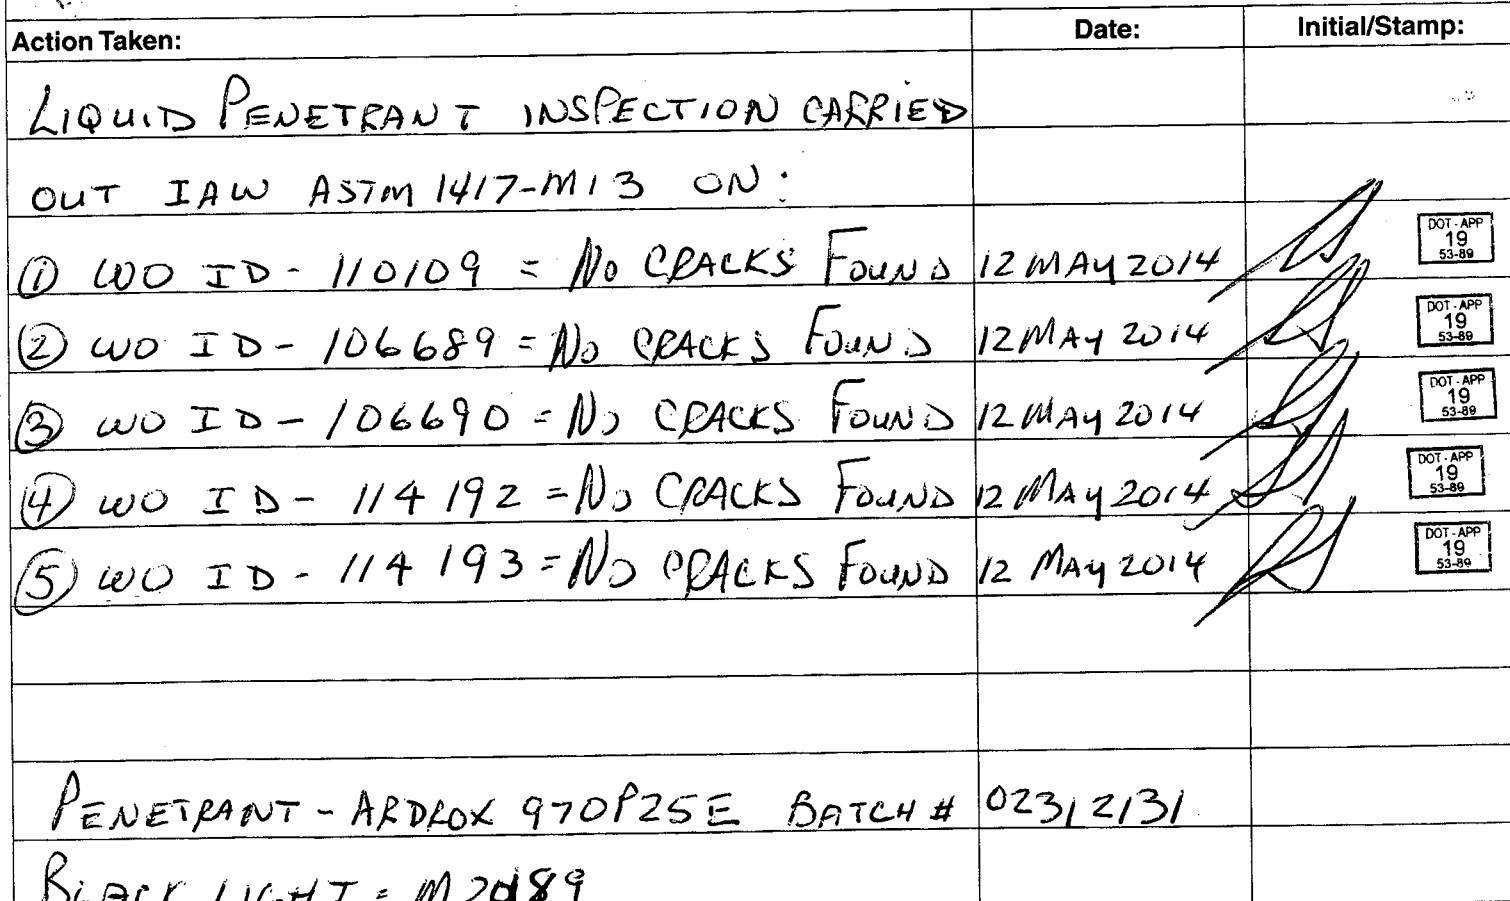 Action Taken: Date: Initial/Stamp:
LIQUID PENETRANT INSPECTION CARRIED
OUT IAW ASTM 1417-M13 ON:
① WO ID - 110109 = No CRACKS FOUND 12 MAY 2014 DOT - APP 19 53-89
② WO ID - 106689 = No CRACKS FOUND 12 MAY 2014 DOT - APP 19 53-89
③ WO ID - 106690 = No CRACKS FOUND 12 MAY 2014 DOT - APP 19 53-89
④ WO ID - 114192 = No CRACKS FOUND 12 MAY 2014 DOT - APP 19 53-89
⑤ WO ID - 114193 = No CRACKS FOUND 12 MAY 2014 DOT - APP 19 53-89
PENETRANT - ARDROX 970P25E BATCH # 02312131
BLACK LIGHT =